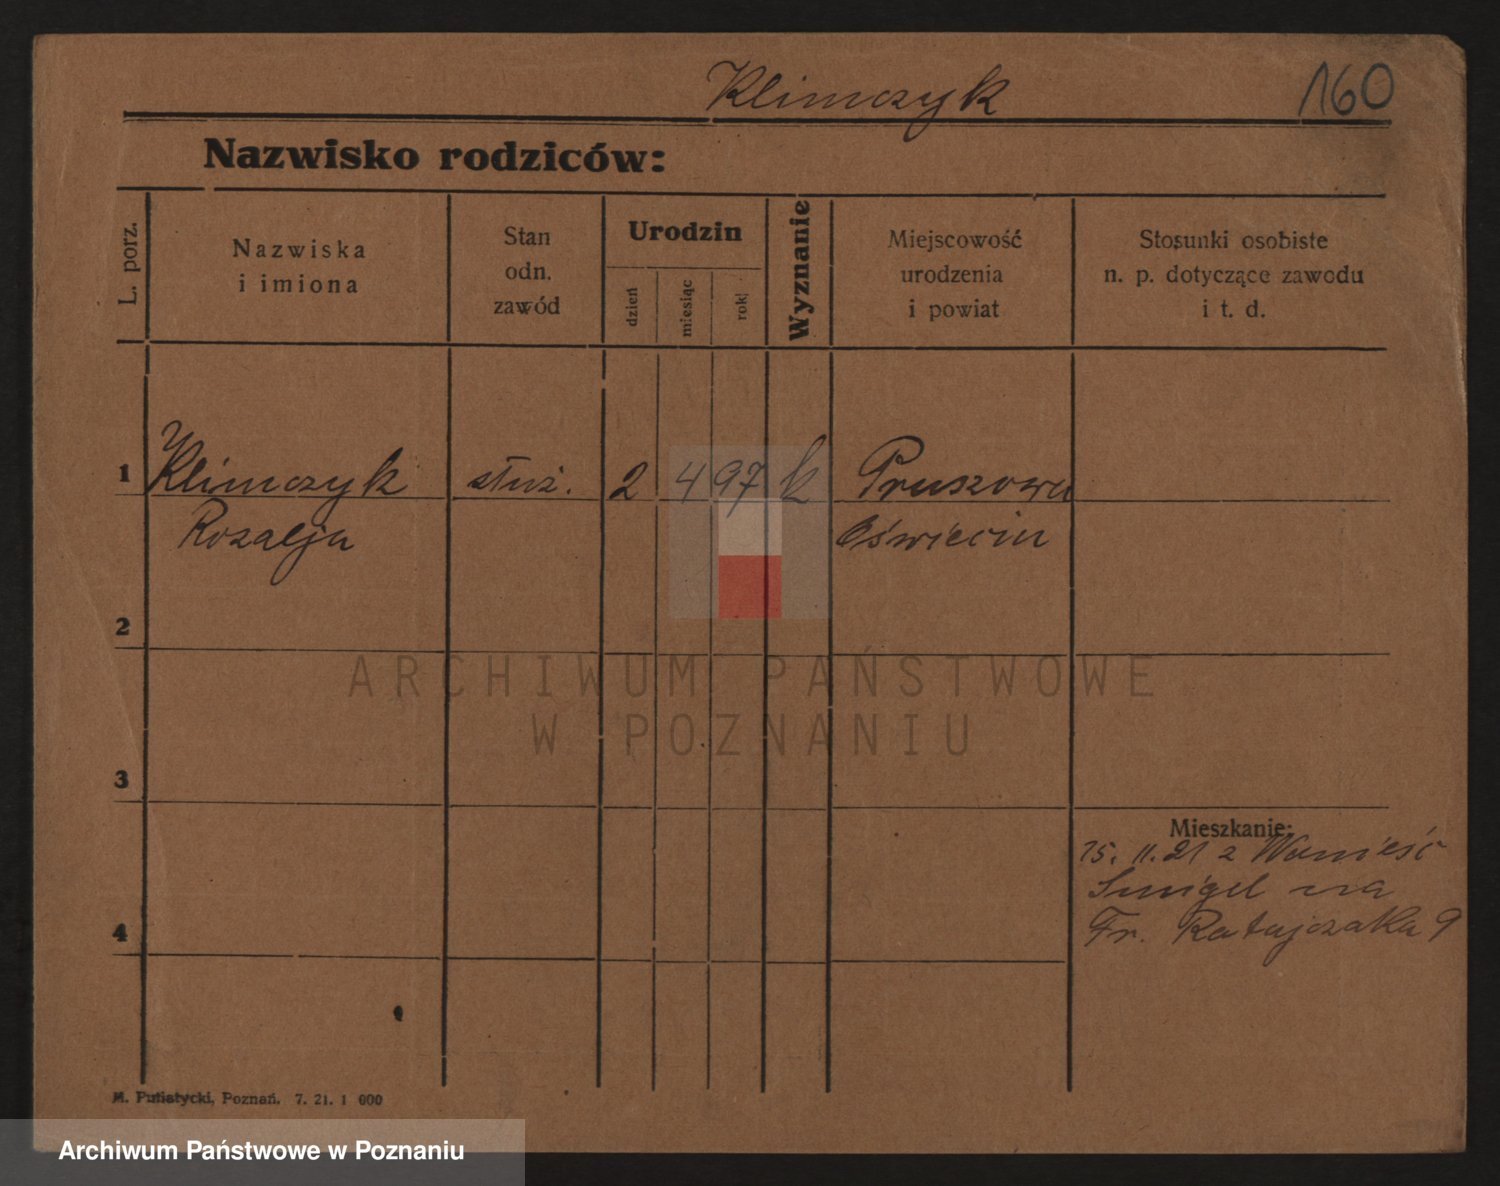 Klimczyk 160
Nazwisko rodziców:
L. porz.
Nazwiska
i imiona
Stan
odn.
zawód
Urodzin
dzień
miesiąc
rok
Wyznanie
Miejscowość
urodzenia
i powiat
Stosunki osobiste
n. p. dotyczące zawodu
i t. d.
1 Klimczyk służ. 2 4 97 k Pruszowa
Rozalja Oświęcim
2
ARCHIWUM PAŃSTWOWE
W POZNANIU
3
Mieszkanie:
15. 11. 21 z
Śmigel na
4 Fr. Ratajczaka 9
M. Putiatycki, Poznań. 7. 21. 1 000
Archiwum Państwowe w Poznaniu